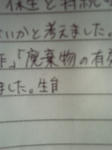 保全と持続
いかと考えました。
」「廃棄物の有
ました。生ま